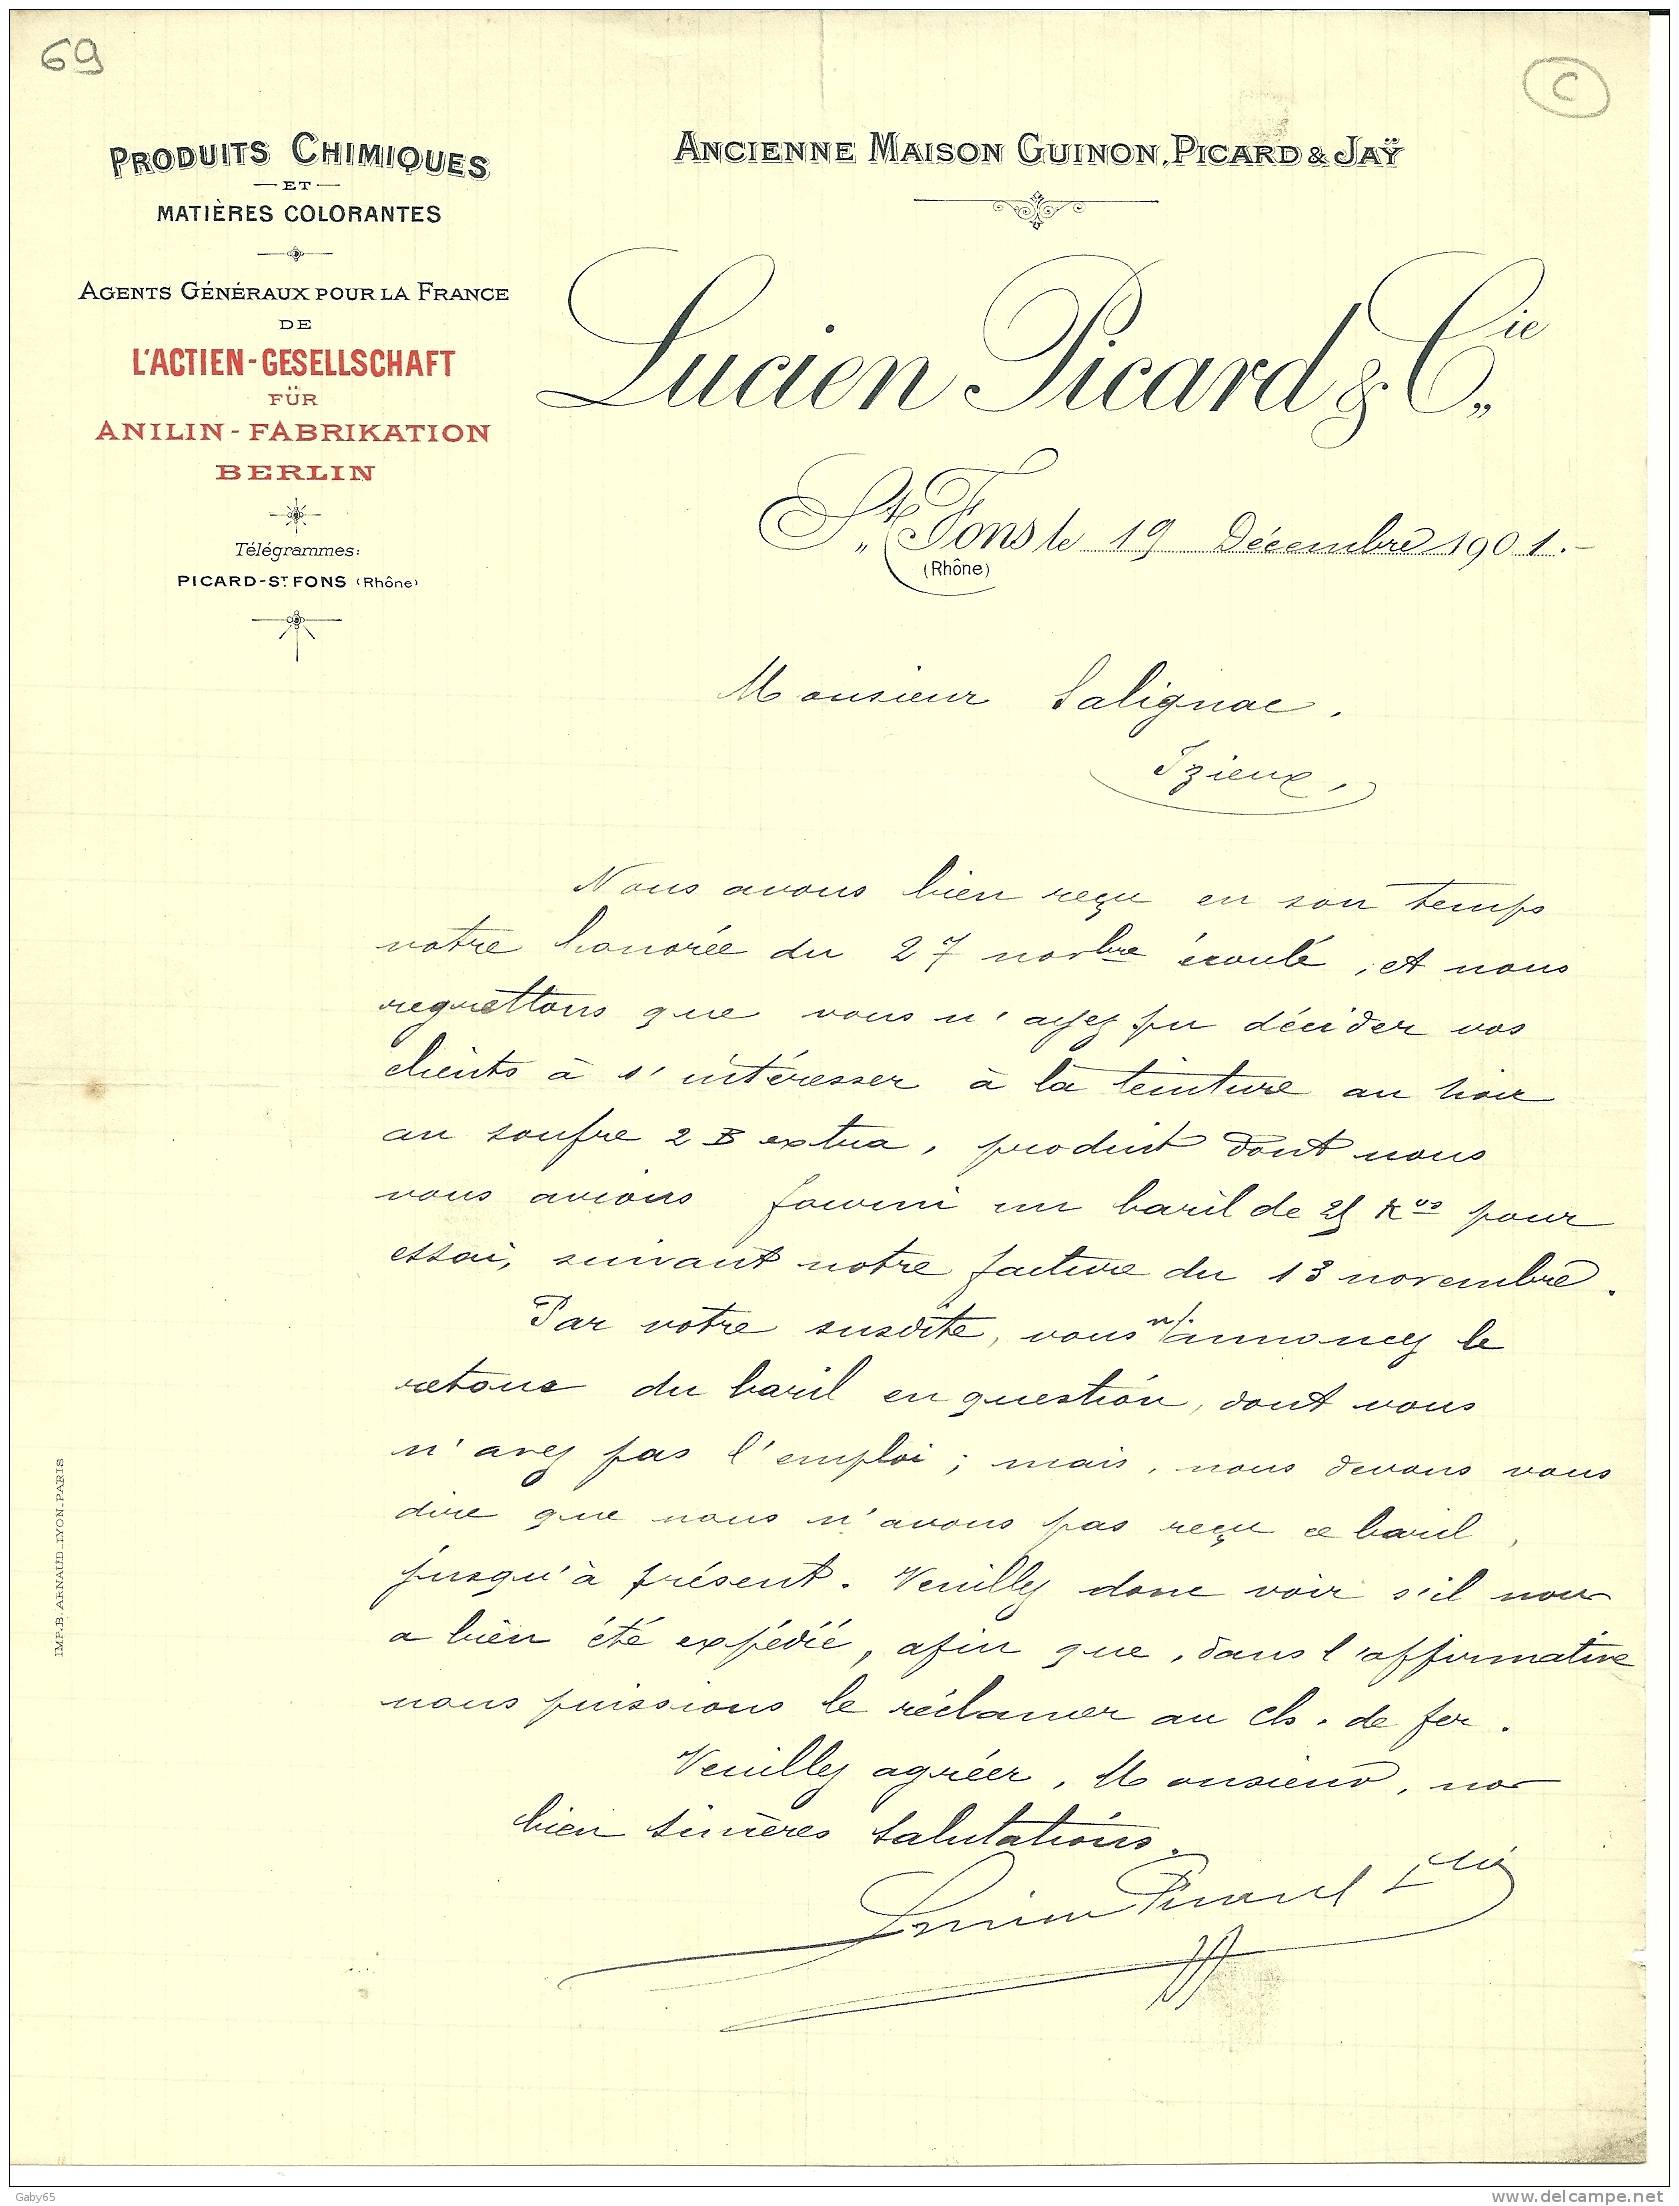 69
C
PRODUITS CHIMIQUES
ET
MATIÈRES COLORANTES
AGENTS GÉNÉRAUX POUR LA FRANCE
DE
L'ACTIEN-GESELLSCHAFT
FÜR
ANILIN-FABRIKATION
BERLIN
Télégrammes:
PICARD-ST FONS (Rhône)
ANCIENNE MAISON GUINON, PICARD & JAŸ
Lucien Picard & Cie
St Fons le 19 Décembre 1901.-
(Rhône)
Monsieur Salignac.
Izieux,
Nous avons bien reçu en son temps
votre honorée du 27 novbre écoulé, et nous
regrettons que vous n'ayez pu décider vos
clients à s'intéresser à la teinture au noir
au soufre 2 B extra, produit dont nous
vous avions fourni un baril de 25 Kos pour
essai, suivant notre facture du 13 novembre.
Par votre susdite, vous n/. annoncez le
retour du baril en question, dont vous
n'avez pas l'emploi; mais, nous devons vous
dire que nous n'avons pas reçu ce baril,
jusqu'à présent. Veuillez donc voir s'il nous
a bien été expédié, afin que, dans l'affirmative
nous puissions le réclamer au ch. de fer.
Veuillez agréer, Monsieur, nos
bien sincères salutations.
Lucien Picard & Cie
IMP. B. ARNAUD. LYON-PARIS
Gaby65
www.delcampe.net